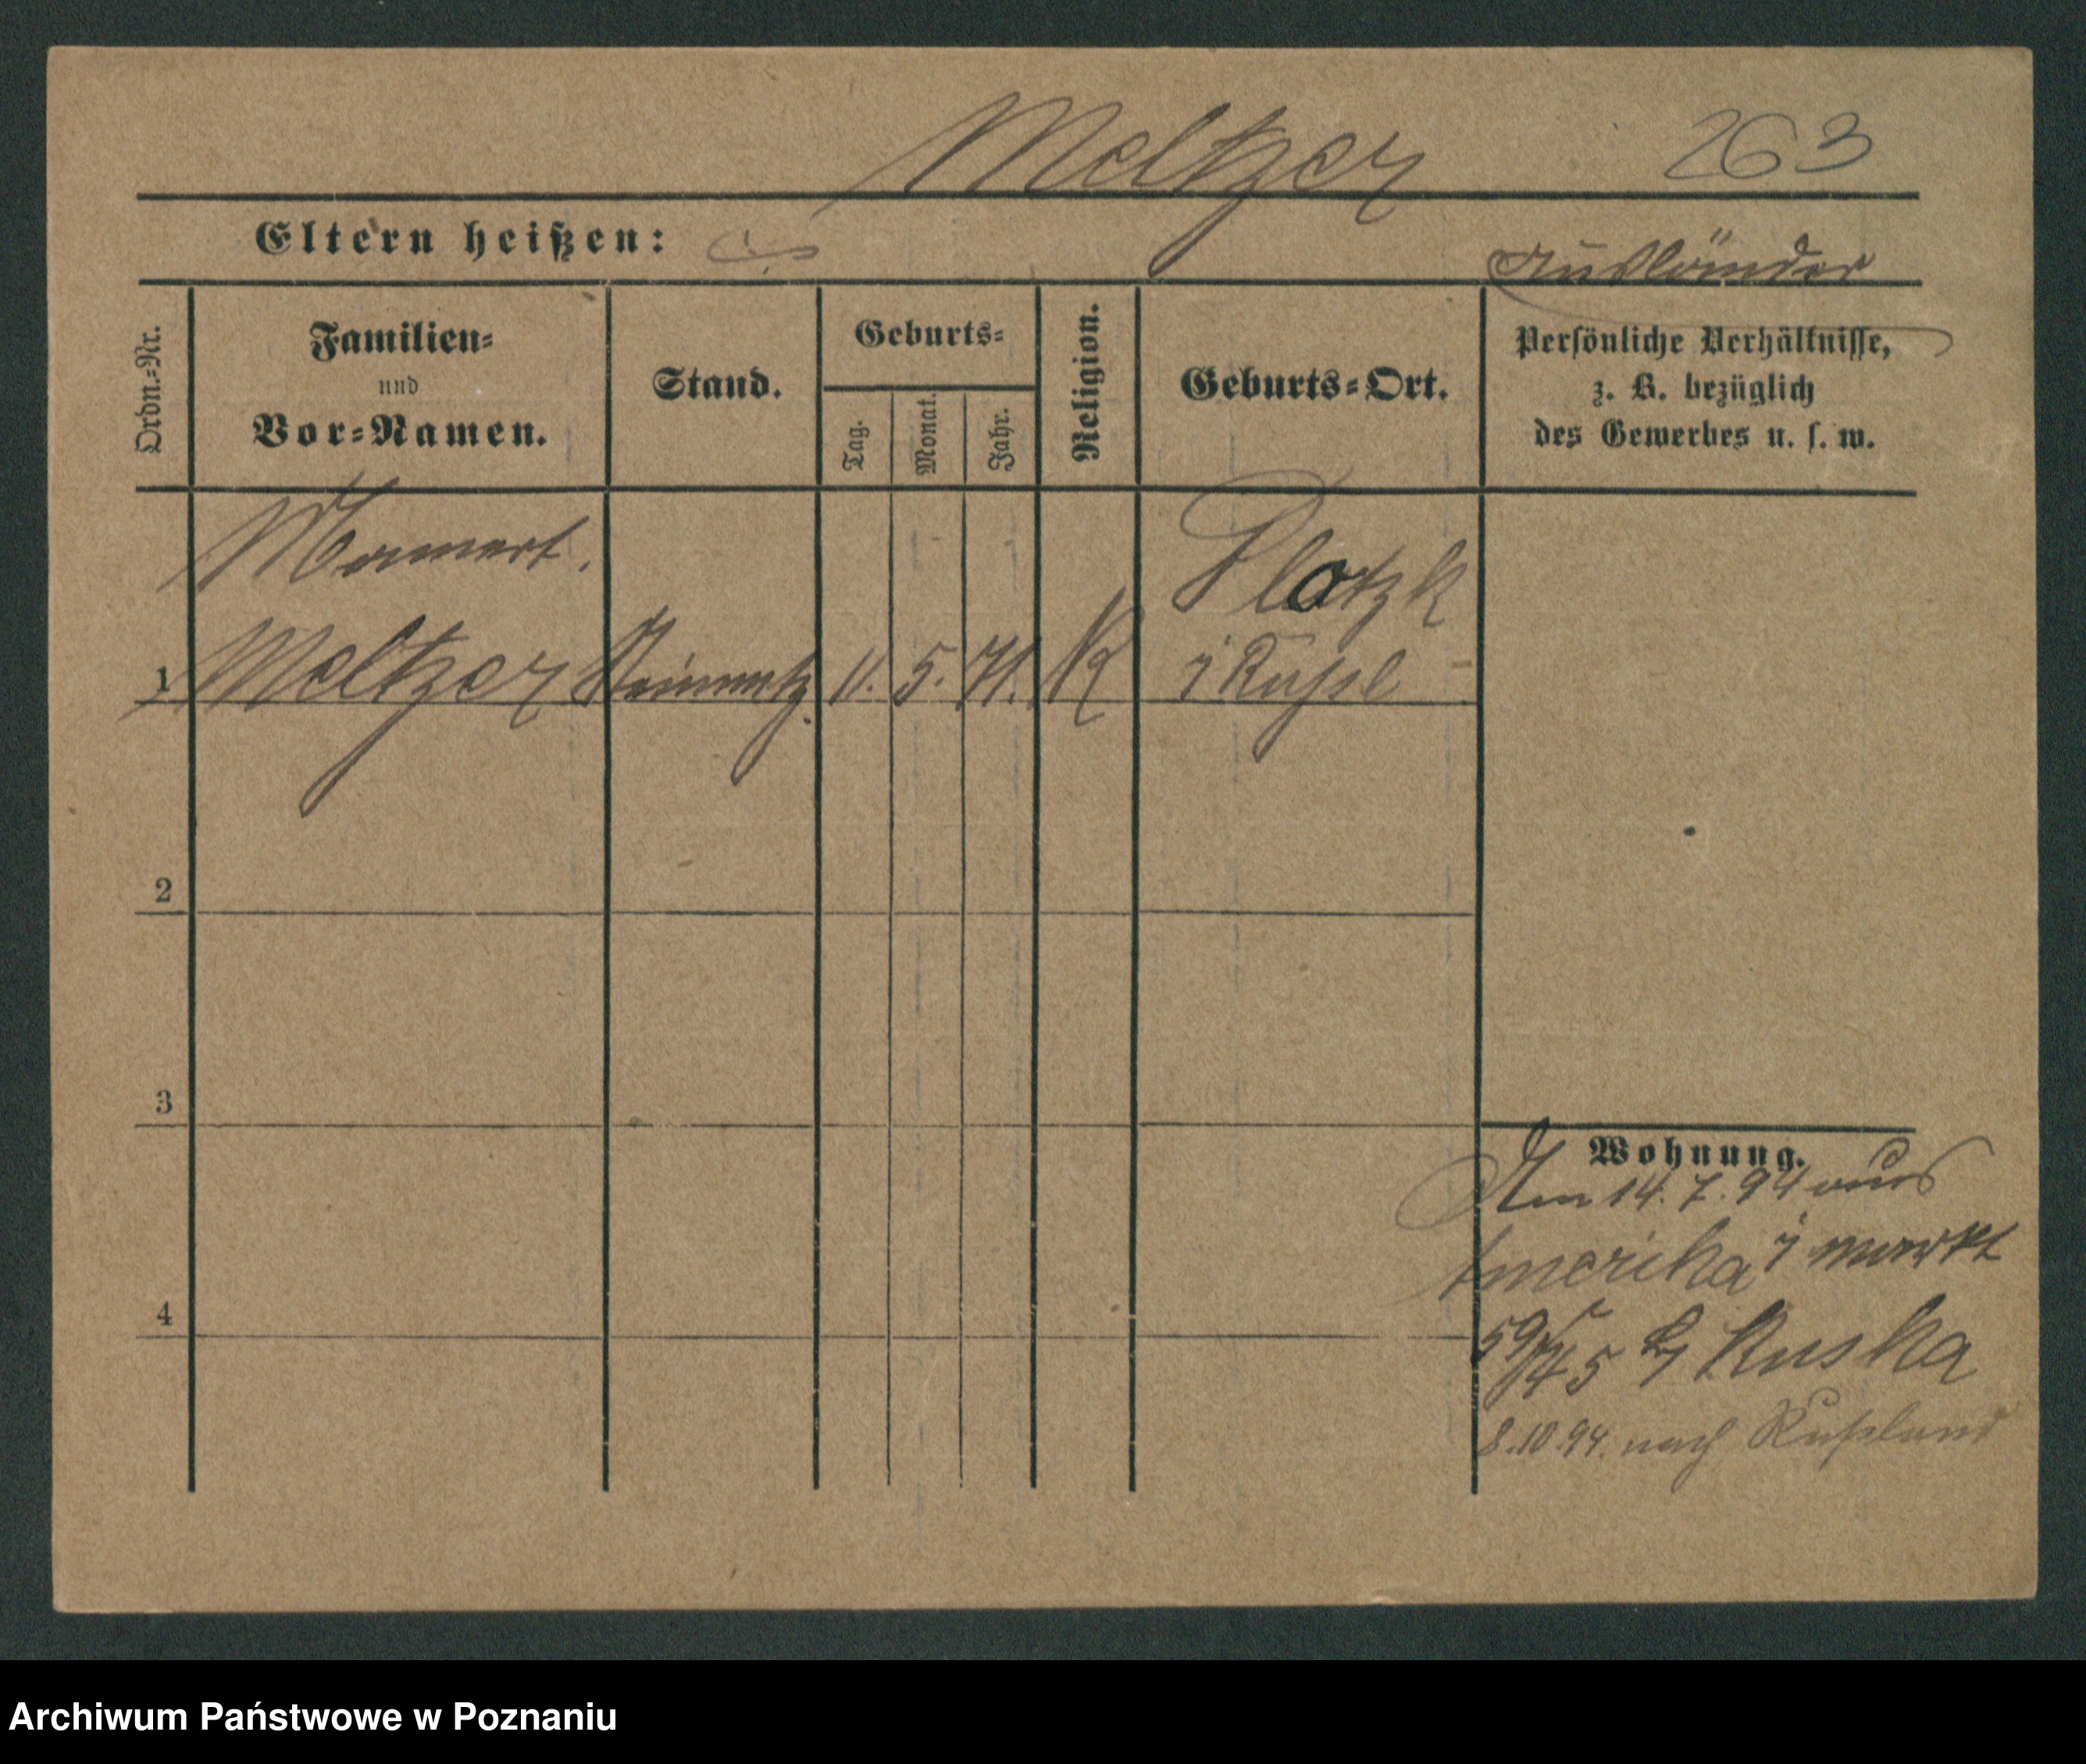 Meltzer 263
Eltern heißen:
Ausländer
Ordn.-Nr.
Familien-
und
Vor-Namen.
Stand.
Geburts-
Tag.
Monat.
Jahr.
Religion.
Geburts-Ort.
Persönliche Verhältnisse,
z. B. bezüglich
des Gewerbes u. s. w.
Mamert.
Plotzk
1 Meltzer Steinmetz. 11. 5. 71. K i Rußl
2
3
4
Wohnung.
Am 14. 7. 94 aus
Amerika
Ruska
8.10.94. nach Rußland
Archiwum Państwowe w Poznaniu